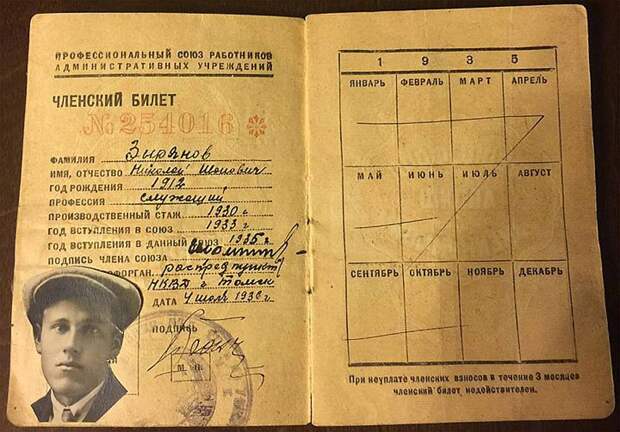 ПРОФЕССИОНАЛЬНЫЙ СОЮЗ РАБОТНИКОВ
АДМИНИСТРАТИВНЫХ УЧРЕЖДЕНИЙ
ЧЛЕНСКИЙ БИЛЕТ
№254016
ФАМИЛИЯ Зырянов
ИМЯ, ОТЧЕСТВО Николай
ГОД РОЖДЕНИЯ 1912
ПРОФЕССИЯ служащий
ПРОИЗВОДСТВЕННЫЙ СТАЖ 1930 г.
ГОД ВСТУПЛЕНИЯ В СОЮЗ 1933 г.
ГОД ВСТУПЛЕНИЯ В ДАННЫЙ СОЮЗ 1935 г.
ПОДПИСЬ ЧЛЕНА СОЮЗА
ПРОФОРГАН. распредпункт
НКВД г. Томск
ДАТА 4 июля 1936 г.
ПОДПИСЬ
М. П.
1 9 3 5
ЯНВАРЬ ФЕВРАЛЬ МАРТ АПРЕЛЬ
МАЙ ИЮНЬ ИЮЛЬ АВГУСТ
СЕНТЯБРЬ ОКТЯБРЬ НОЯБРЬ ДЕКАБРЬ
При неуплате членских взносов в течение 3 месяцев
членский билет недействителен.